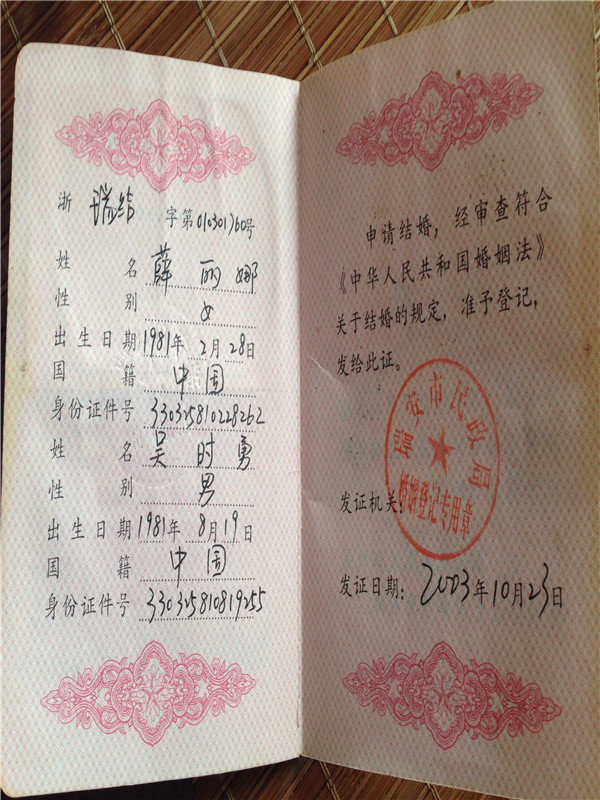 浙 瑞结 字第010301760号
姓名 薛丽娜
性别 女
出生日期 1981年2月28日
国籍 中国
身份证件号 330325810228262
姓名 吴时勇
性别 男
出生日期 1981年8月19日
国籍 中国
身份证件号 330325810819255
申请结婚，经审查符合
《中华人民共和国婚姻法》
关于结婚的规定，准予登记，
发给此证。
瑞安市民政局
婚姻登记专用章
发证机关：
发证日期：2003年10月23日